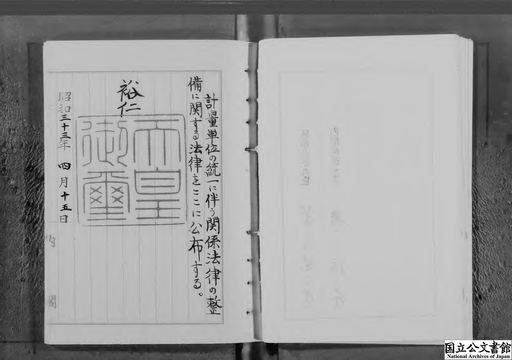 計量単位の統一に伴う関係法律の整
備に関する法律をここに公布する。
裕仁
天皇
御璽
昭和三十三年四月十五日
内閣
国立公文書館
National Archives of Japan